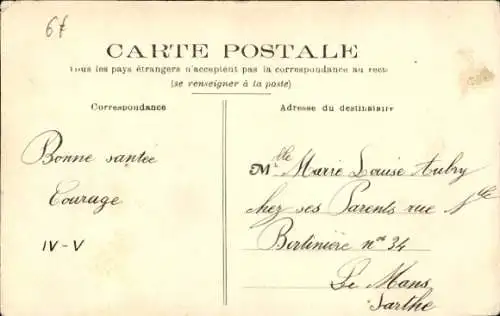 6f
CARTE POSTALE
Tous les pays étrangers n'acceptent pas la correspondance au recto
(se renseigner à la poste)
Correspondance
Adresse du destinataire
Bonne santée
Courage
IV-V
Mlle Marie Louise Aubry
chez ses Parents rue Nlle
Bertinière nos 34
Le Mans
Sarthe